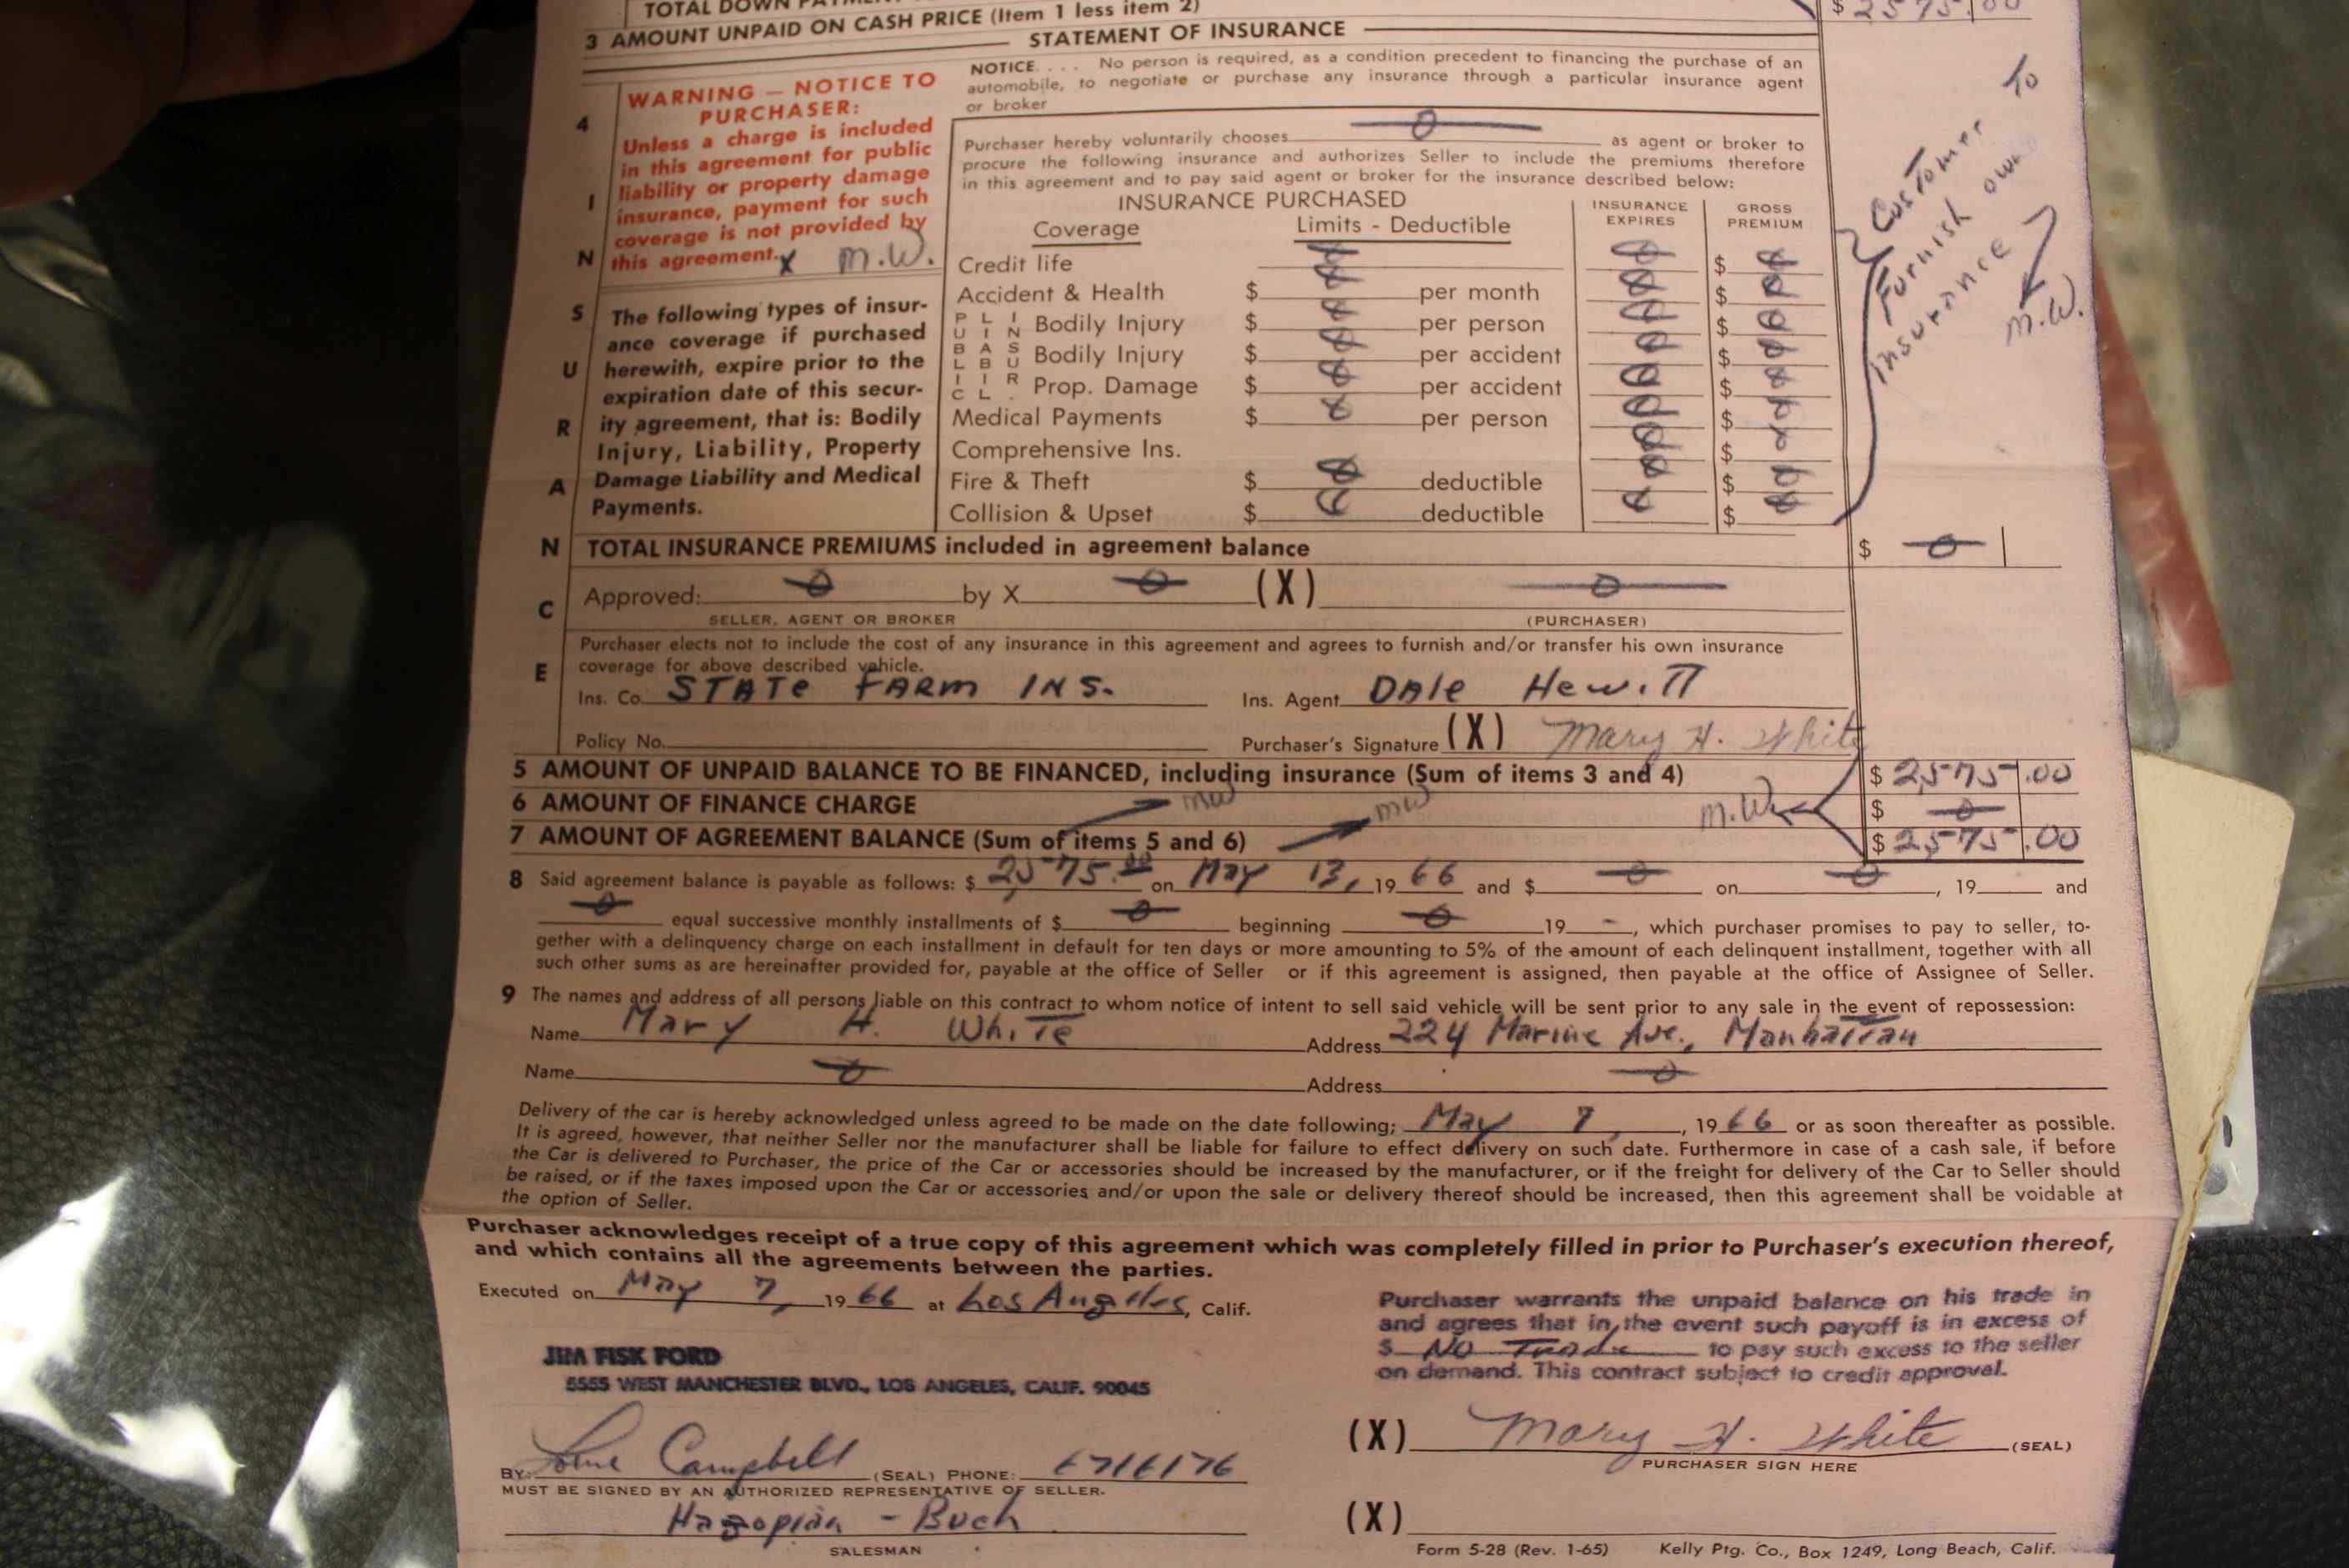 TOTAL DOWN
3 AMOUNT UNPAID ON CASH PRICE (Item 1 less item 2) $ 2575.00
STATEMENT OF INSURANCE
4
WARNING — NOTICE TO
PURCHASER:
Unless a charge is included
in this agreement for public
liability or property damage
insurance, payment for such
coverage is not provided by
this agreement. X M.W.
The following types of insur-
ance coverage if purchased
herewith, expire prior to the
expiration date of this secur-
ity agreement, that is: Bodily
Injury, Liability, Property
Damage Liability and Medical
Payments.
INSURANCE
NOTICE. . . . No person is required, as a condition precedent to financing the purchase of an
automobile, to negotiate or purchase any insurance through a particular insurance agent
or broker
Purchaser hereby voluntarily chooses 0 as agent or broker to
procure the following insurance and authorizes Seller to include the premiums therefore
in this agreement and to pay said agent or broker for the insurance described below:
INSURANCE PURCHASED
Coverage Limits - Deductible INSURANCE EXPIRES GROSS PREMIUM
Credit life 0 0 $ 0
Accident & Health $ 0 per month 0 $ 0
PUBLIC LIABIL. INSUR.
Bodily Injury $ 0 per person 0 $ 0
Bodily Injury $ 0 per accident 0 $ 0
Prop. Damage $ 0 per accident 0 $ 0
Medical Payments $ 0 per person 0 $ 0
Comprehensive Ins. 0 $ 0
Fire & Theft $ 0 deductible 0 $ 0
Collision & Upset $ 0 deductible 0 $ 0
Customer To
Furnish own
insurance
M.W.
TOTAL INSURANCE PREMIUMS included in agreement balance $ 0
Approved: 0 by X 0 (X) 0
SELLER, AGENT OR BROKER (PURCHASER)
Purchaser elects not to include the cost of any insurance in this agreement and agrees to furnish and/or transfer his own insurance
coverage for above described vehicle.
Ins. Co. STATE FARM INS. Ins. Agent DALE HEWITT
Policy No. Purchaser's Signature (X) Mary H. White
5 AMOUNT OF UNPAID BALANCE TO BE FINANCED, including insurance (Sum of items 3 and 4) $ 2,575.00
6 AMOUNT OF FINANCE CHARGE MW MW M.W. $ 0
7 AMOUNT OF AGREEMENT BALANCE (Sum of items 5 and 6) $ 2,575.00
8 Said agreement balance is payable as follows: $ 2,575.00 on May 13, 19 66 and $ 0 on 0, 19 and
0 equal successive monthly installments of $ 0 beginning 0 19 -, which purchaser promises to pay to seller, to-
gether with a delinquency charge on each installment in default for ten days or more amounting to 5% of the amount of each delinquent installment, together with all
such other sums as are hereinafter provided for, payable at the office of Seller or if this agreement is assigned, then payable at the office of Assignee of Seller.
9 The names and address of all persons liable on this contract to whom notice of intent to sell said vehicle will be sent prior to any sale in the event of repossession:
Name Mary H. White Address 224 Marine Ave., Manhattan
Name 0 Address 0
Delivery of the car is hereby acknowledged unless agreed to be made on the date following; May 7, 19 66 or as soon thereafter as possible.
It is agreed, however, that neither Seller nor the manufacturer shall be liable for failure to effect delivery on such date. Furthermore in case of a cash sale, if before
the Car is delivered to Purchaser, the price of the Car or accessories should be increased by the manufacturer, or if the freight for delivery of the Car to Seller should
be raised, or if the taxes imposed upon the Car or accessories and/or upon the sale or delivery thereof should be increased, then this agreement shall be voidable at
the option of Seller.
Purchaser acknowledges receipt of a true copy of this agreement which was completely filled in prior to Purchaser's execution thereof,
and which contains all the agreements between the parties.
Executed on May 7, 19 66 at Los Angeles, Calif.
JIM FISK FORD
5555 WEST MANCHESTER BLVD., LOS ANGELES, CALIF. 90045
Purchaser warrants the unpaid balance on his trade in
and agrees that in the event such payoff is in excess of
$ No Trade to pay such excess to the seller
on demand. This contract subject to credit approval.
BY: Campbell (SEAL) PHONE: 6716176
MUST BE SIGNED BY AN AUTHORIZED REPRESENTATIVE OF SELLER.
Hagopian - Buch
SALESMAN
(X) Mary H. White (SEAL)
PURCHASER SIGN HERE
(X)
Form 5-28 (Rev. 1-65) Kelly Ptg. Co., Box 1249, Long Beach, Calif.